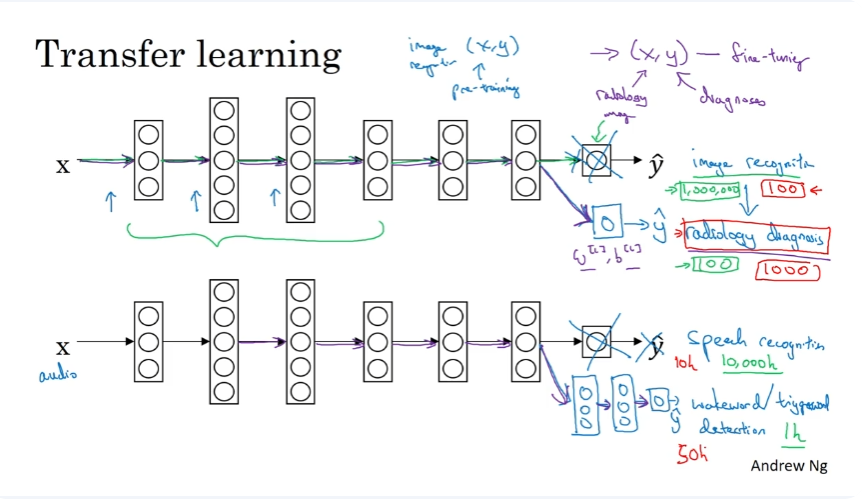 Transfer learning
image (x,y)
pre-training
→ (x,y) — fine-tuning
radiology
diagnoses
x
ŷ
image recognition
→ 1,000,000
100 ←
ŷ
radiology diagnosis
w[L], b[L]
→ 100
1000
x
audio
ŷ
speech recognition
10h 10,000h
wakeword/triggerword
ŷ
detection 1h
50h
Andrew Ng